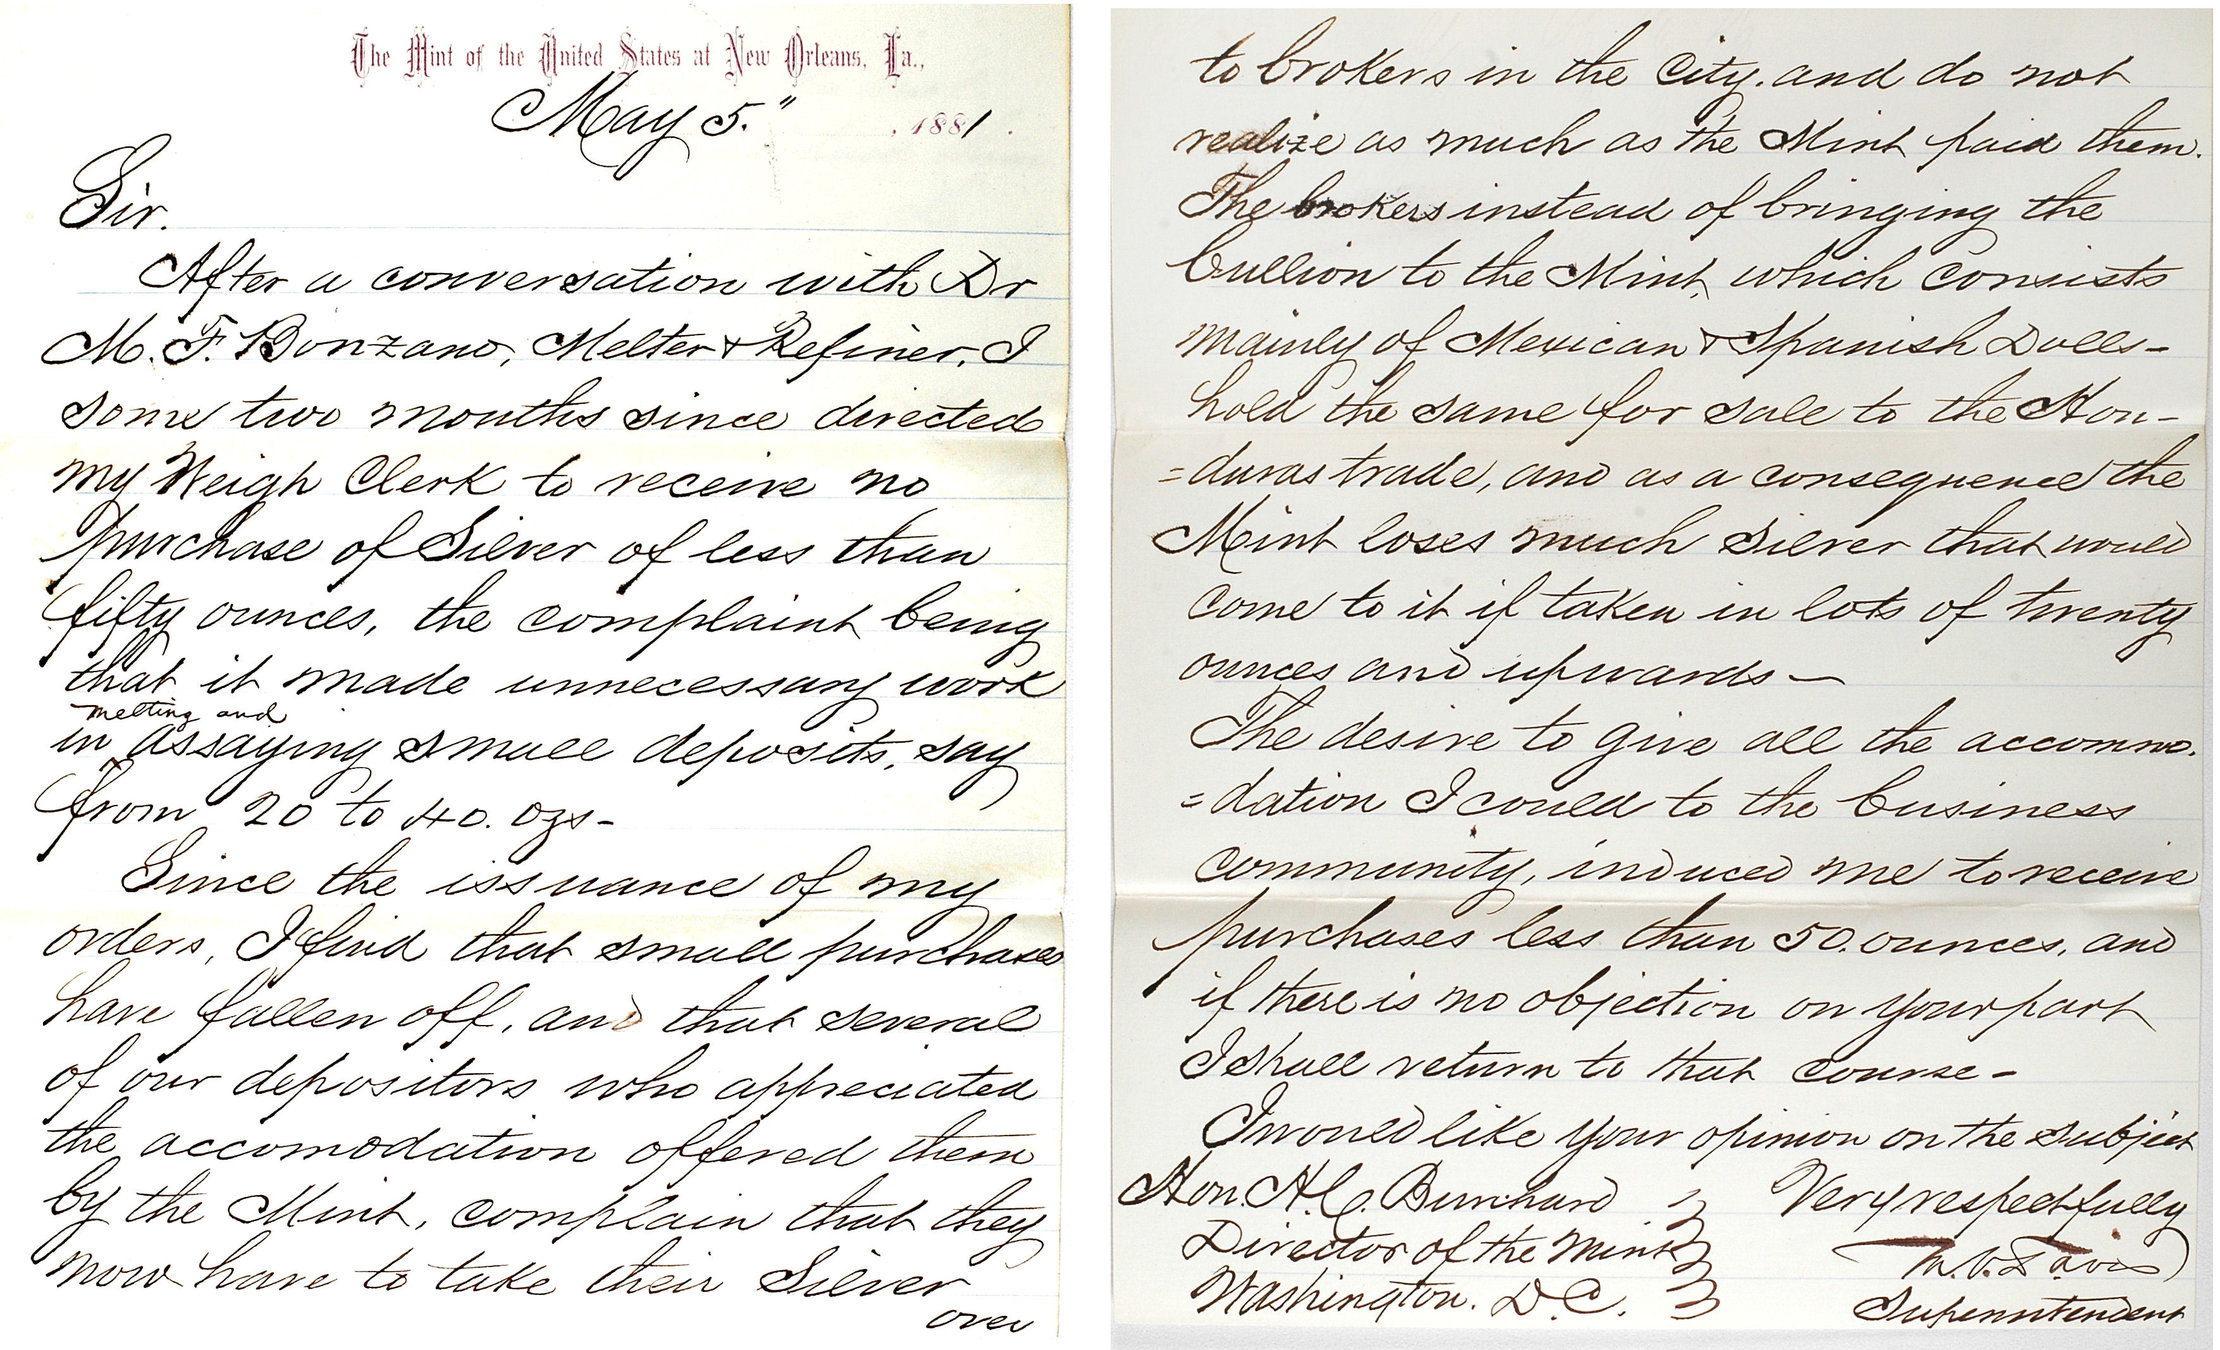 The Mint of the United States at New Orleans, La.,
May 5." , 1881.
Sir.
After a conversation with Dr
M. F. Bonzano, Melter & Refiner, I
some two months since directed
my Weigh Clerk to receive no
purchase of Silver of less than
fifty ounces, the complaint being
that it made unnecessary work
melting and
in assaying small deposits, say
from 20 to 40. ozs-
Since the issuance of my
orders, I find that small purchases
have fallen off, and that several
of our depositors who appreciated
the accomodation offered them
by the Mint, complain that they
now have to take their Silver
over
to brokers in the City. and do not
realize as much as the Mint paid them.
The brokers instead of bringing the
bullion to the Mint, which consists
mainly of Mexican & Spanish Dolls-
hold the same for sale to the Hon-
=duras trade, and as a consequence the
Mint loses much silver that would
come to it if taken in lots of twenty
ounces and upwards—
The desire to give all the accommo-
=dation I could to the business
community, induced me to receive
purchases less than 50. ounces, and
if there is no objection on your part
I shall return to that course-
I would like your opinion on the subject
Hon. H. C. Burchard } Very respectfully
Director of the Mint } M. V. Davis
Washington. D. C. } Superintendent